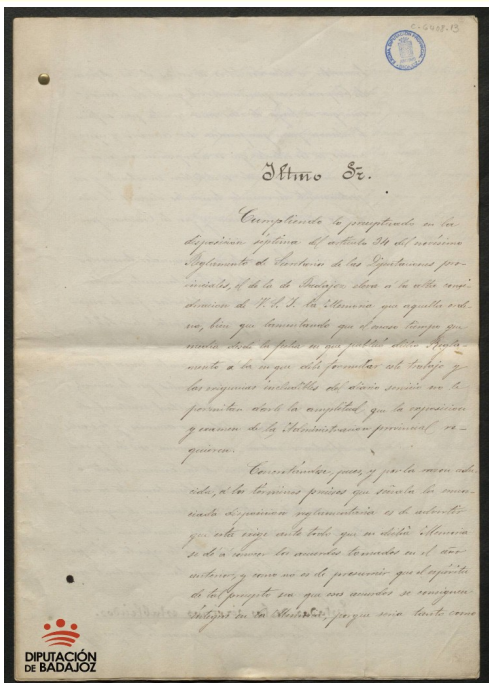 C-4408-13
Iltmo Sr.
Cumpliendo lo preceptuado en la
disposición séptima del artículo 34 del novísimo
Reglamento de Secretarios de las Diputaciones pro-
vinciales, el de la de Badajoz eleva á la alta consi-
deración de V.S.I. la Memoria que aquella orde-
na, bien que lamentando que el escaso tiempo que
media desde la fecha en que publicó dicho Regla-
mento a la en que debe formular este trabajo y
las exigencias ineludibles del diario servicio no le
permitan darle la amplitud, que la exposición
y examen de la Administración provincial re-
quieren.
Concretándose, pues, y por la razón adu-
cida, á los términos precisos que señala la enun-
ciada disposición reglamentaria es de advertir
que esta exige ante todo que en dicha Memoria
se dé á conocer los acuerdos tomados en el año
anterior, y como no es de presumir que el espíritu
de tal precepto sea que esos acuerdos se consignen
íntegros en la Memoria, porque sería tanto como
DIPUTACIÓN
DE BADAJOZ